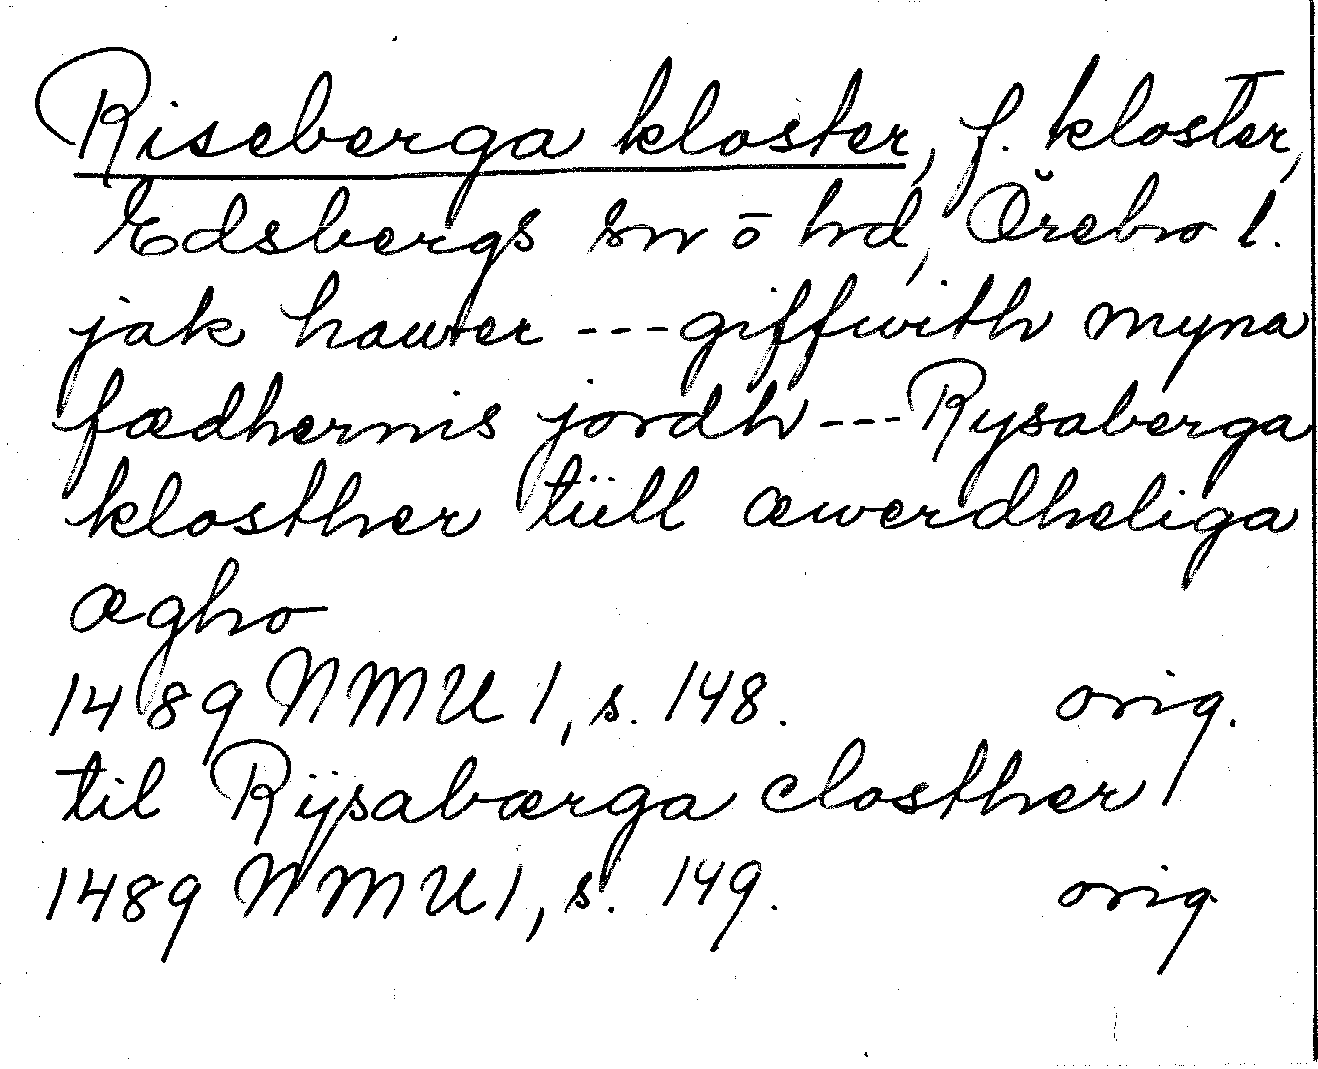 Riseberga kloster, f. kloster,
Edsbergs sn o hd, Örebro l.
jak hawer --- giffwith myna
fædhernis jordh --- Rysaberga
closther tiill æwerdheliga
ægho
1489 NMU 1, s. 148. orig.
til Rijsabærga closther
1489 NMU 1, s. 149. orig.